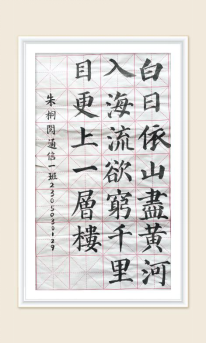 白日依山盡黃河
入海流欲窮千里
目更上一層樓
朱桐閲通信一班2305030129